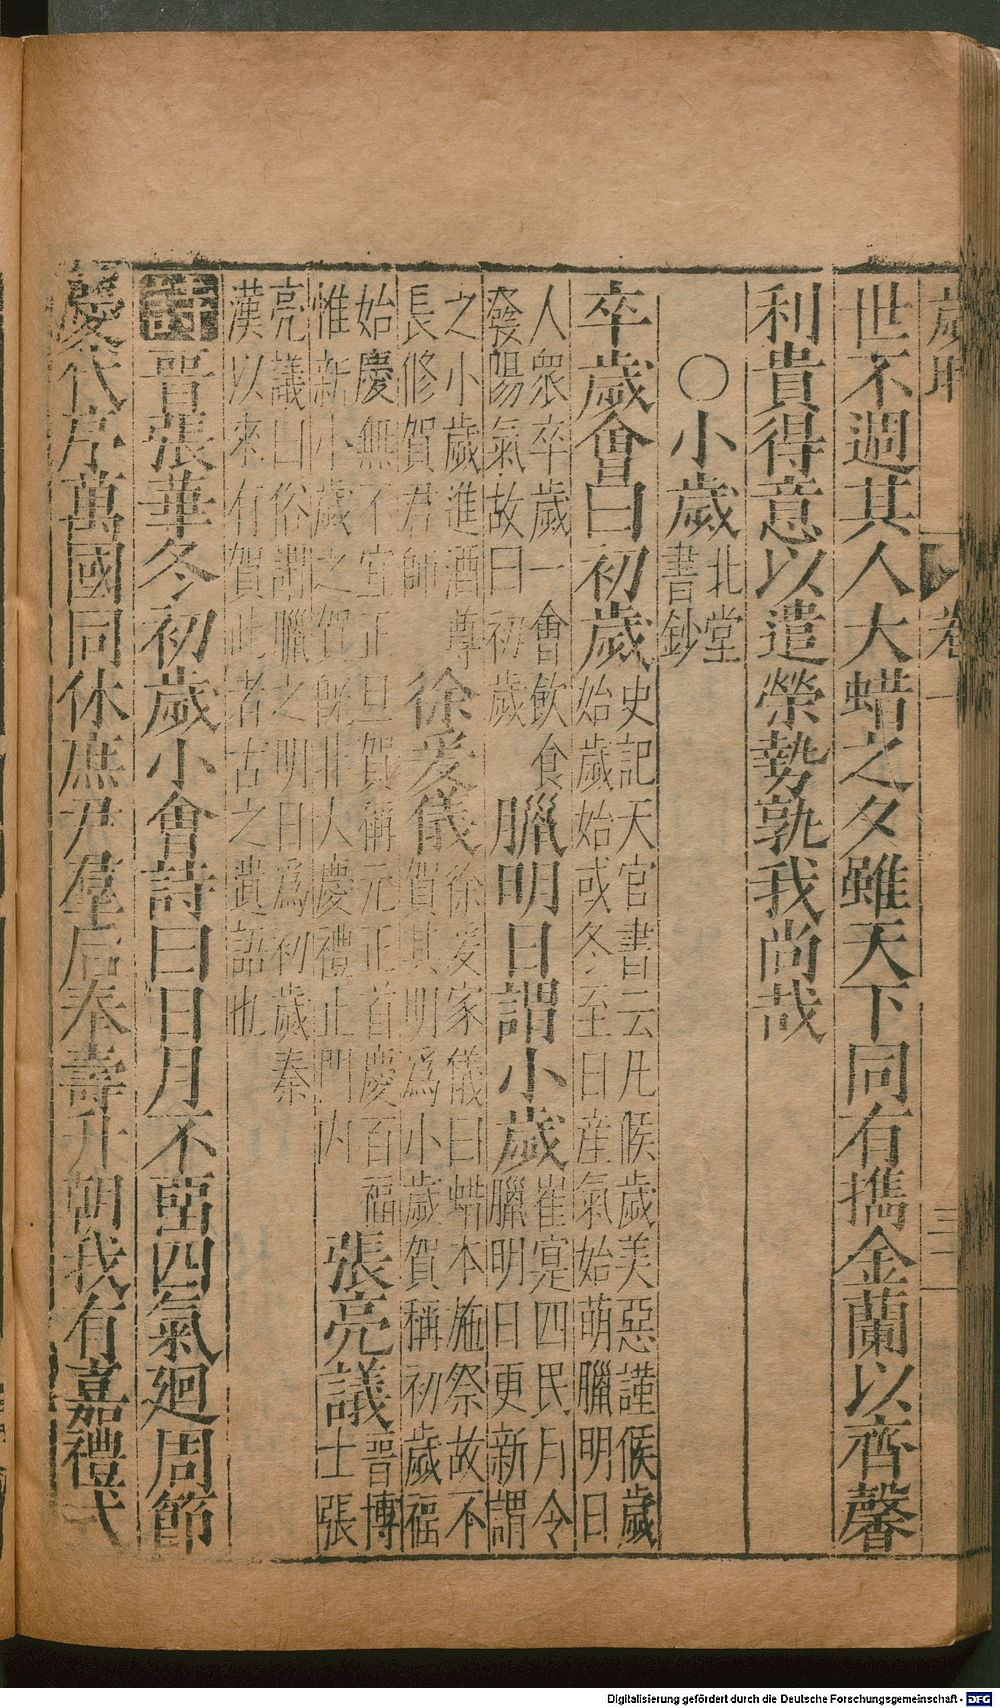 歲時 卷一 三二
世不過其人大蜡之夕雖天下同有攜金蘭以齊馨
利貴得意以遣榮勢孰我尚哉
○小歲北堂書鈔
卒歲會曰初歲史記天官書云凡候歲美惡謹候歲始歲始或冬至日産氣始萌臘明日
人眾卒歲一會飲食發陽氣故曰初歲臘明日謂小歲崔寔四民月令臘明日更新謂
之小歲進酒尊長修賀君師徐爰儀徐爰家儀曰蜡本施祭故不賀其明爲小歲賀稱初歲福
始慶無不宜正旦賀稱元正首慶百福惟新小歲之賀旣非大慶禮止門內張亮議晉博士張
亮議曰俗謂臘之明日爲初歲秦漢以來有賀此者古之遺語也
詩晉張華冬初歲小會詩曰日月不畱四氣廻周節
慶代序萬國同休庶尹羣后奉壽升朝我有嘉禮式
Digitalisierung gefördert durch die Deutsche Forschungsgemeinschaft - DFG